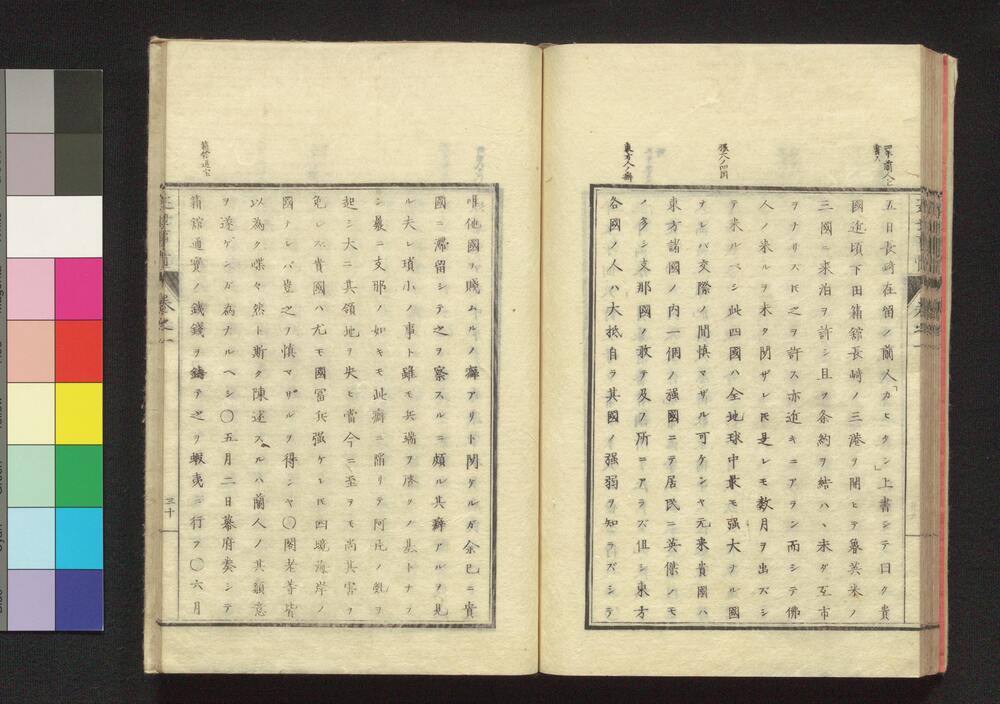 五日長崎在留ノ蘭人「カヒタン」上書シテ曰ク貴
國近頃下田箱舘長崎ノ三港ヲ開ヒテ魯英米ノ
三國ニ来泊ヲ許シ且ツ条約ヲ結ハヽ未ダ互市
ヲナリス𪜈之ヲ許ス亦近キニアラン而シテ佛
人ノ来ルヲ未タ聞ザレ𪜈是レモ数月ヲ出ズシ
テ来ルベシ此四國ハ全地球中最モ强大ナル國
ナレバ交際ノ間慎マザル可ケンヤ元来貴國ハ
東方諸國ノ内一個ノ强國ニテ居民ニ英傑ノモ
ノ多シ支那國ノ敢テ及フ所ニアラズ但シ東方
各國ノ人ハ大抵自ラ其國ノ强弱ヲ知ラズシテ
蘭人上書ス
强大ノ四國
東方人ノ癖
唯他國ヲ賤ムルノ癖アリト聞ケルガ余已ニ貴
國ニ滞留シテ之ヲ察スルニ頗ル其癖アルヲ見
ル夫レ瑣小ノ事ト雖モ兵端ヲ啓クノ基トナラ
ン曩ニ支那ノ如キモ此癖ニ陥リテ阿片ノ乱ヲ
起シ大ニ其領地ヲ失ヒ當今ニ至ルモ尚其害ヲ
免レス貴國ハ尤モ國冨兵强ケレ𪜈四境海岸ノ
國ナレバ豈之ヲ慎マザルヲ得ンヤ〇閣老等皆
以為ク喋々然ト斯ク陳述スルハ蘭人ノ其願意
ヲ遂ゲンガ為ナルヘシ〇五月二日幕府奏シテ
箱舘通寳ノ鐵錢ヲ鑄テ之ヲ蝦夷ニ行フ〇六月
箱舘通宝
卷之一
三十